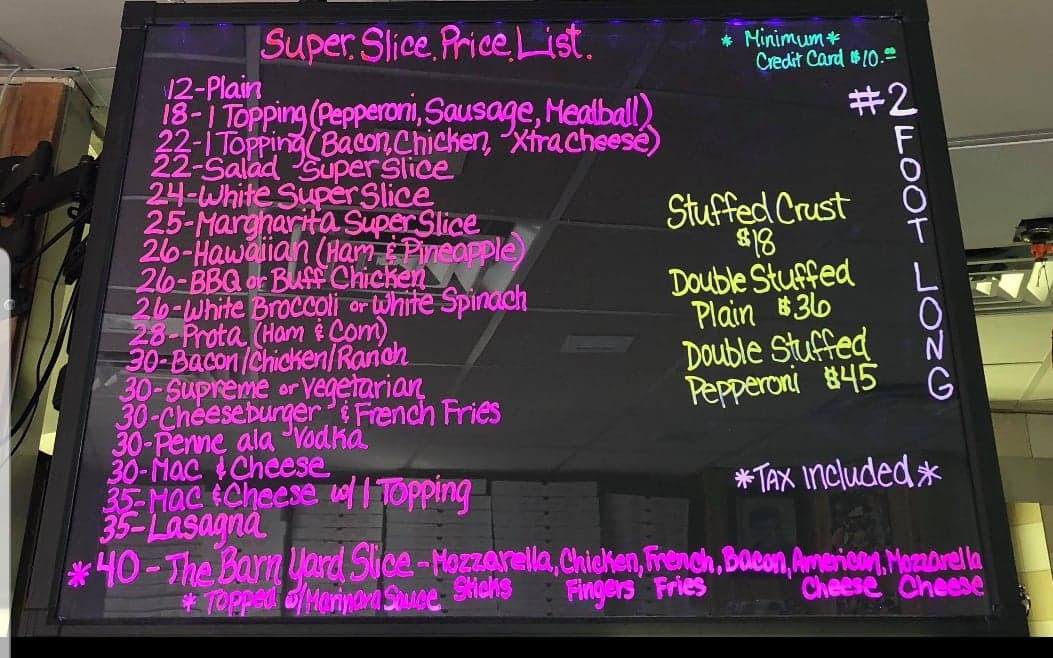 Super Slice Price List.
* Minimum *
Credit Card $10.00
12-Plain
18-1 Topping (Pepperoni, Sausage, Meatball)
22-1 Topping (Bacon, Chicken, Xtra cheese)
22-Salad Super Slice
24-White Super Slice
25-Margharita Super Slice
26-Hawaiian (Ham & Pineapple)
26-BBQ or Buff Chicken
26-White Broccoli or White Spinach
28-Prota (Ham & Corn)
30-Bacon/Chicken/Ranch
30-Supreme or Vegetarian
30-Cheeseburger & French Fries
30-Penne ala Vodka
30-Mac & Cheese
35-Mac & Cheese w/ 1 Topping
35-Lasagna
*40-The Barn Yard Slice-Mozzarella, Chicken, French, Bacon, American, Mozzarella
Sticks Fingers Fries Cheese Cheese
* Topped w/Marinara Sauce
Stuffed Crust
$18
Double Stuffed
Plain $36
Double Stuffed
Pepperoni $45
*TAX included*
#2
FOOT
LONG